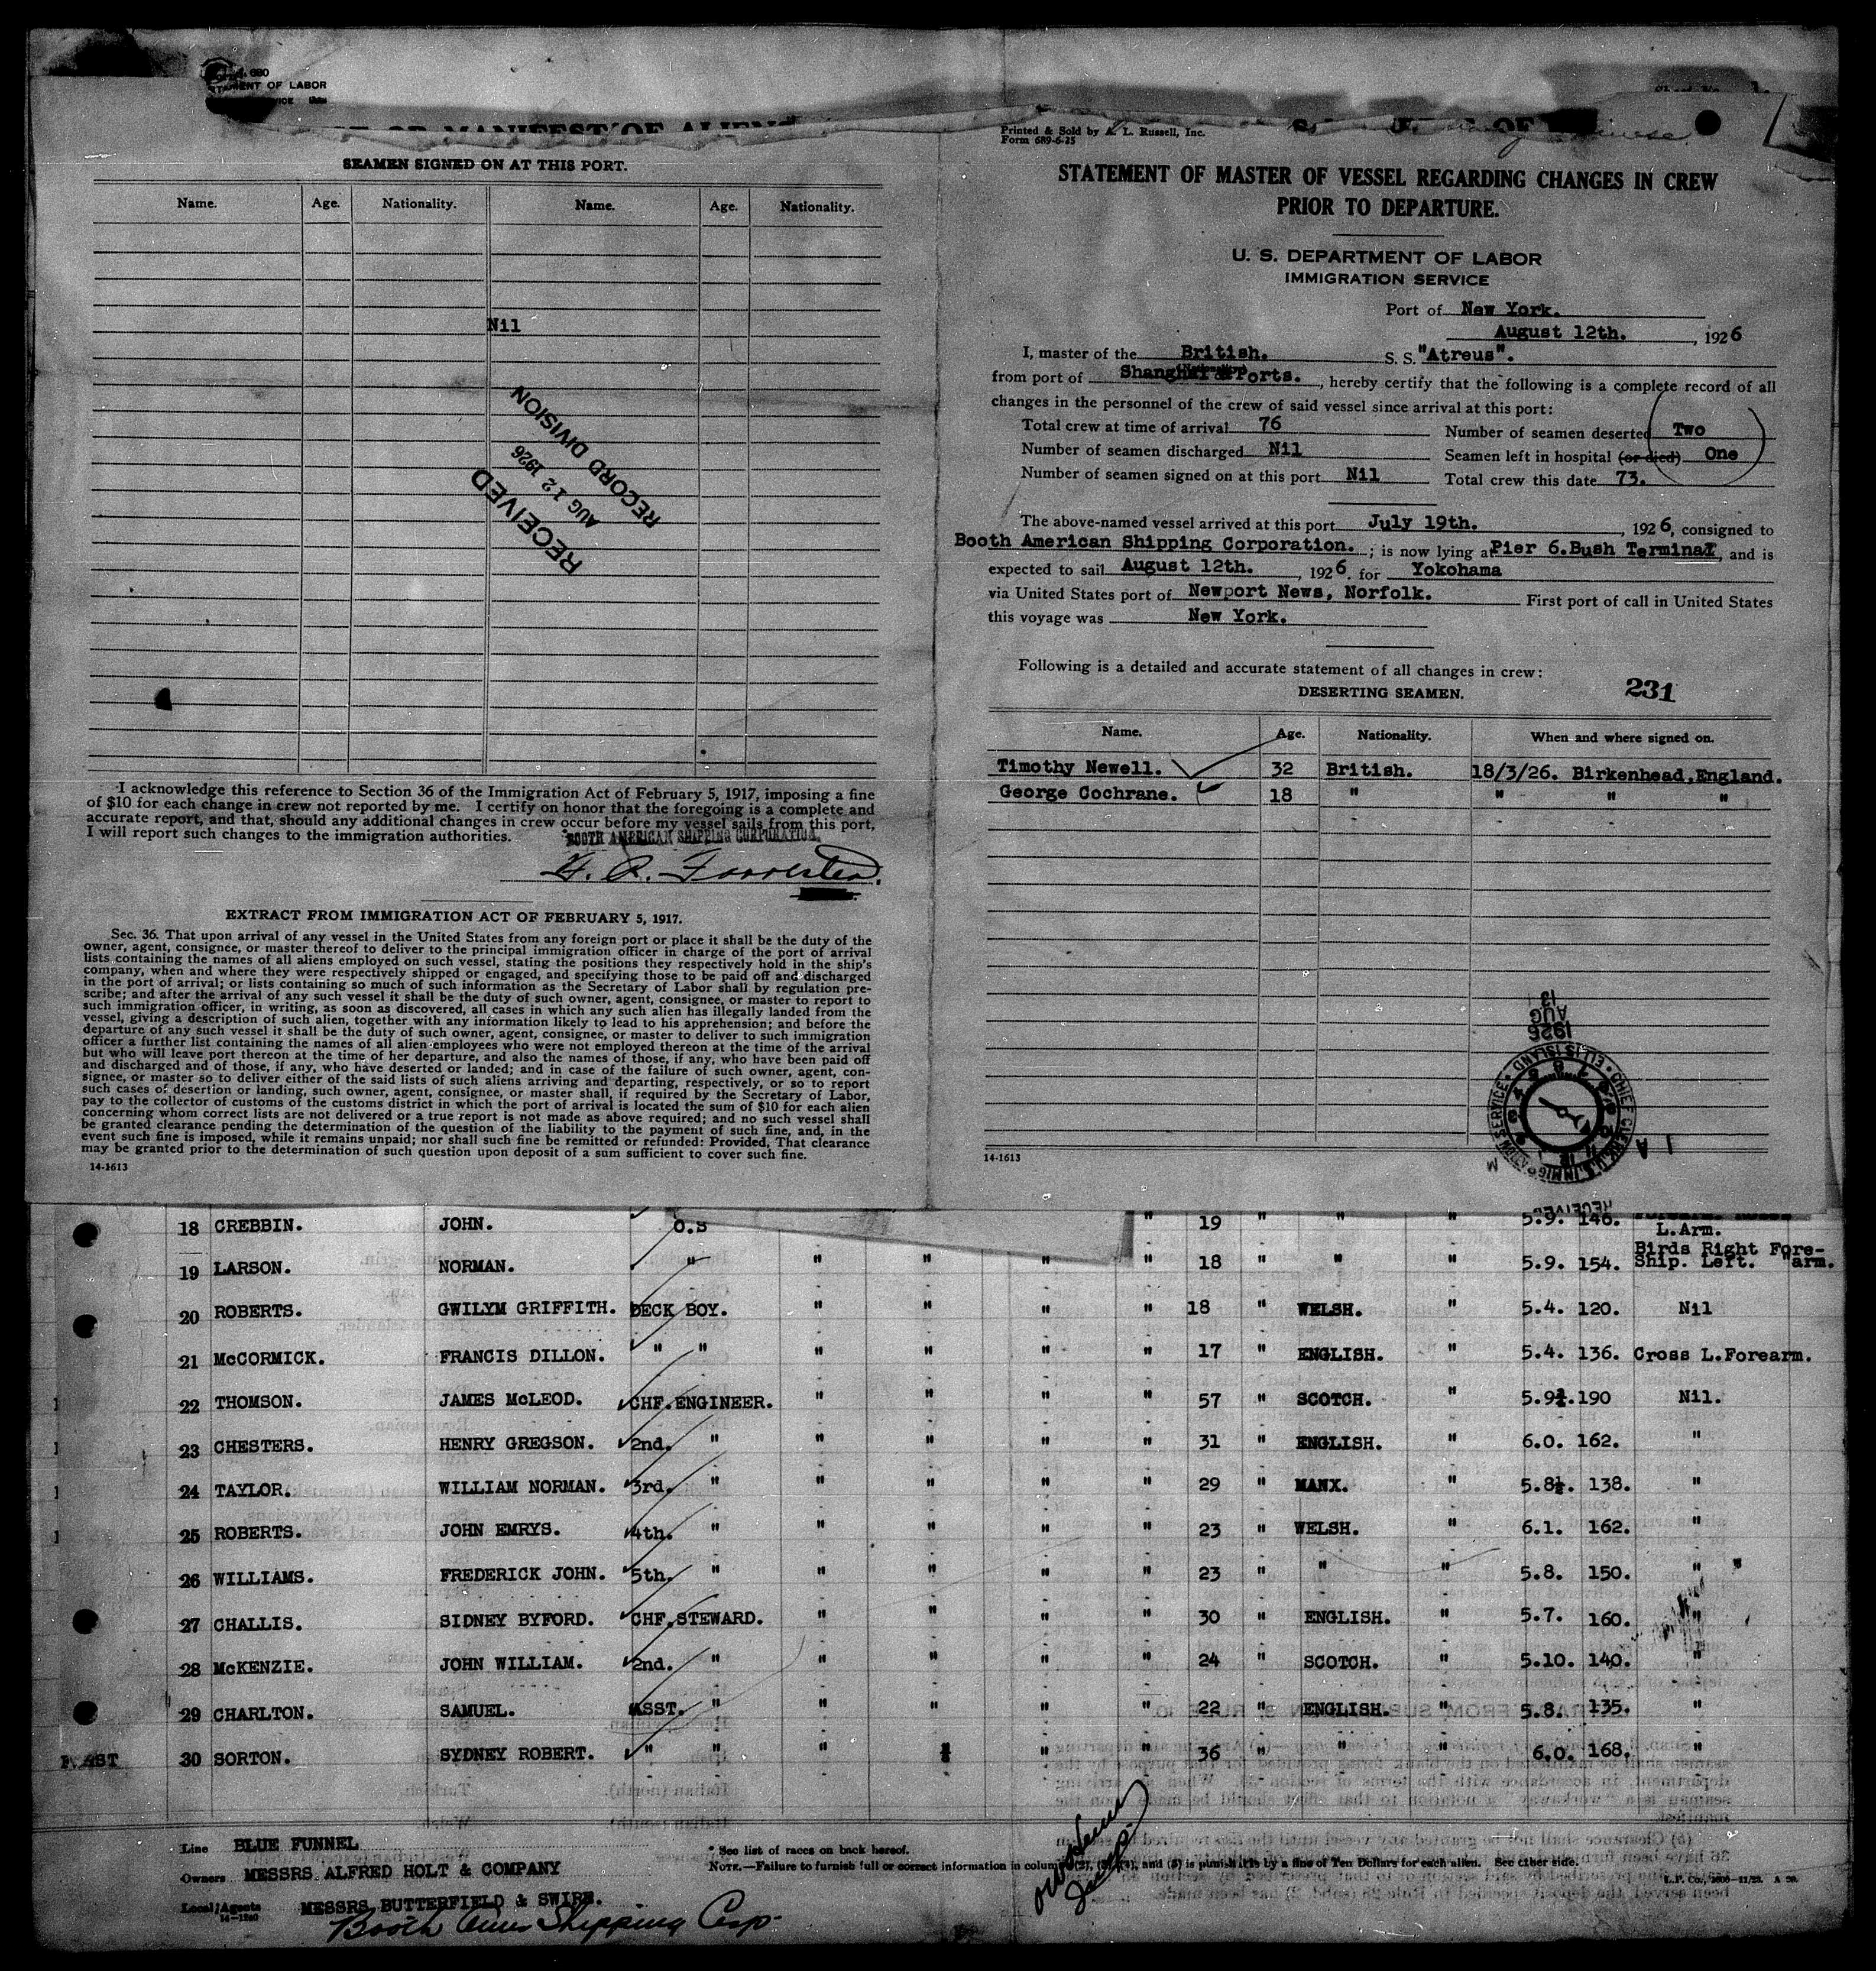 680
OF LABOR
OR MANIFEST OF ALIENS
SEAMEN SIGNED ON AT THIS PORT.
Name. Age. Nationality. Name. Age. Nationality.
Nil
RECEIVED
AUG 12 1926
RECORD DIVISION
I acknowledge this reference to Section 36 of the Immigration Act of February 5, 1917, imposing a fine
of $10 for each change in crew not reported by me. I certify on honor that the foregoing is a complete and
accurate report, and that, should any additional changes in crew occur before my vessel sails from this port,
I will report such changes to the immigration authorities.
BOOTH AMERICAN SHIPPING CORPORATION.
EXTRACT FROM IMMIGRATION ACT OF FEBRUARY 5, 1917.
Sec. 36. That upon arrival of any vessel in the United States from any foreign port or place it shall be the duty of the
owner, agent, consignee, or master thereof to deliver to the principal immigration officer in charge of the port of arrival
lists containing the names of all aliens employed on such vessel, stating the positions they respectively hold in the ship's
company, when and where they were respectively shipped or engaged, and specifying those to be paid off and discharged
in the port of arrival; or lists containing so much of such information as the Secretary of Labor shall by regulation pre-
scribe; and after the arrival of any such vessel it shall be the duty of such owner, agent, consignee, or master to report to
such immigration officer, in writing, as soon as discovered, all cases in which any such alien has illegally landed from the
vessel, giving a description of such alien, together with any information likely to lead to his apprehension; and before the
departure of any such vessel it shall be the duty of such owner, agent, consignee, or master to deliver to such immigration
officer a further list containing the names of all alien employees who were not employed thereon at the time of the arrival
but who will leave port thereon at the time of her departure, and also the names of those, if any, who have been paid off
and discharged and of those, if any, who have deserted or landed; and in case of the failure of such owner, agent, con-
signee, or master so to deliver either of the said lists of such aliens arriving and departing, respectively, or so to report
such cases of desertion or landing, such owner, agent, consignee, or master shall, if required by the Secretary of Labor,
pay to the collector of customs of the customs district in which the port of arrival is located the sum of $10 for each alien
concerning whom correct lists are not delivered or a true report is not made as above required; and no such vessel shall
be granted clearance pending the determination of the question of the liability to the payment of such fine, and, in the
event such fine is imposed, while it remains unpaid; nor shall such fine be remitted or refunded: Provided, That clearance
may be granted prior to the determination of such question upon deposit of a sum sufficient to cover such fine.
14-1613
Printed & Sold by A. L. Russell, Inc.
Form 689-6-25
STATEMENT OF MASTER OF VESSEL REGARDING CHANGES IN CREW
PRIOR TO DEPARTURE.
U. S. DEPARTMENT OF LABOR
IMMIGRATION SERVICE
Port of New York.
August 12th. , 1926
I, master of the British. S. S. "Atreus".
from port of Shanghai & Ports. , hereby certify that the following is a complete record of all
changes in the personnel of the crew of said vessel since arrival at this port:
Total crew at time of arrival 76 Number of seamen deserted Two
Number of seamen discharged Nil Seamen left in hospital (or died) One
Number of seamen signed on at this port Nil Total crew this date 73.
The above-named vessel arrived at this port July 19th. , 1926, consigned to
Booth American Shipping Corporation. ; is now lying at Pier 6.Bush Terminal, and is
expected to sail August 12th. , 1926. for Yokohama
via United States port of Newport News, Norfolk. First port of call in United States
this voyage was New York.
Following is a detailed and accurate statement of all changes in crew:
DESERTING SEAMEN. 231
Name. Age. Nationality. When and where signed on.
Timothy Newell. 32 British. 18/3/26. Birkenhead,England.
George Cochrane. 18 " " " "
1926
AUG
13
CHIEF CLERK U.S. IMMIGRATION SERVICE ELLIS ISLAND
RECEIVED
14-1613
18 CREBBIN. JOHN. O.S " 19 " " " 5.9. 146. L.Arm.
19 LARSON. NORMAN. " " " " " 18 " " " 5.9. 154. Birds Right Fore-
Ship. Left. "arm.
20 ROBERTS. GWILYM GRIFFITH. DECK BOY. " " " " 18 " WELSH. " 5.4. 120. Nil
21 McCORMICK. FRANCIS DILLON. " " " " " " 17 " ENGLISH. " 5.4. 136. Cross L.Forearm.
22 THOMSON. JAMES McLEOD. CHF.ENGINEER. " " " " 57 " SCOTCH. " 5.9½.190 Nil.
23 CHESTERS. HENRY GREGSON. 2nd. " " " " " 31 " ENGLISH. " 6.0. 162. "
24 TAYLOR. WILLIAM NORMAN. 3rd. " " " " " 29 " MANX. " 5.8½. 138. "
25 ROBERTS. JOHN EMRYS. 4th. " " " " " 23 " WELSH. " 6.1. 162. "
26 WILLIAMS. FREDERICK JOHN. 5th. " " " " " 23 " " " 5.8. 150. "
27 CHALLIS. SIDNEY BYFORD. CHF.STEWARD. " " " " 30 " ENGLISH. " 5.7. 160. "
28 McKENZIE. JOHN WILLIAM. 2nd. " " " " " 24 " SCOTCH. " 5.10. 140. "
29 CHARLTON. SAMUEL. ASST. " " " " " 22 " ENGLISH. " 5.8. 135. "
30 SORTON. SYDNEY ROBERT. " " " " " " 36 " " " 6.0. 168. "
Line BLUE FUNNEL
Owners MESSRS ALFRED HOLT & COMPANY
Local Agents MESSRS BUTTERFIELD & SWIRE.
14-1240
Booth Amer Shipping Corp.
* See list of races on back hereof.
NOTE.—Failure to furnish full or correct information in columns (2), (3), (4), and (5) is punishable by a fine of Ten Dollars for each alien. See other side.